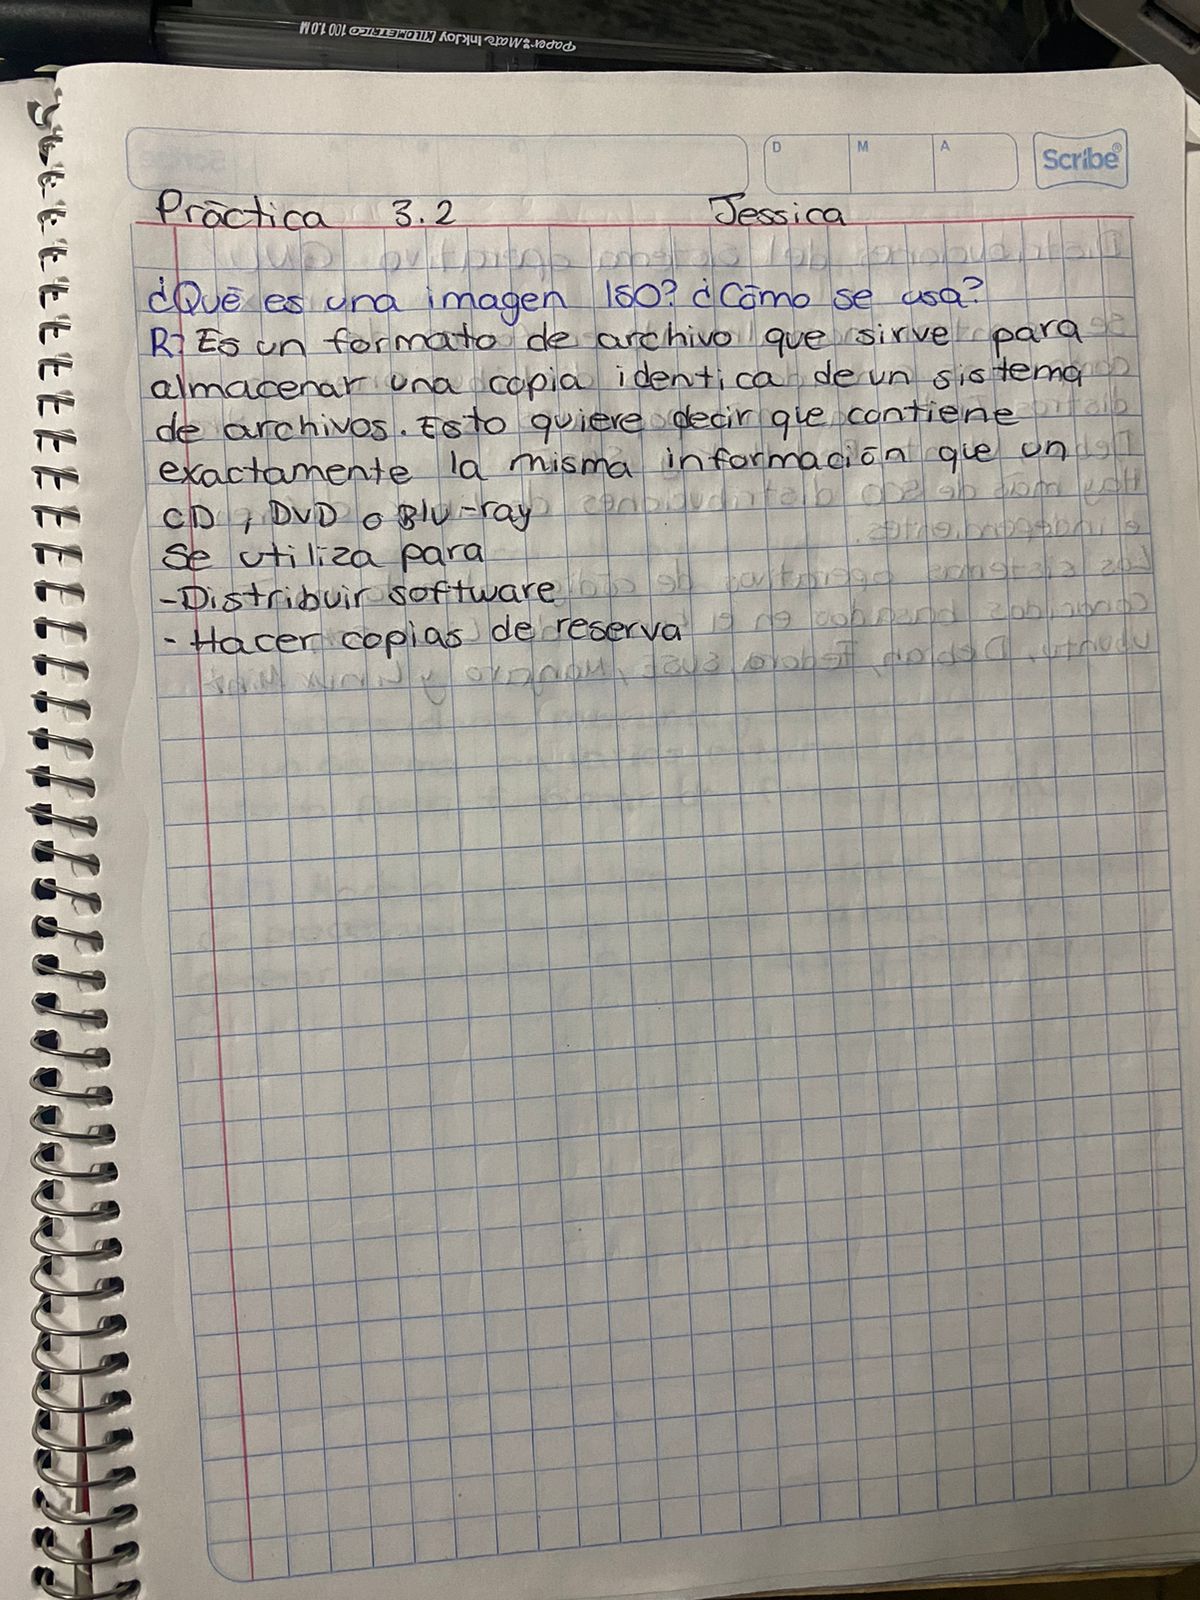 Paper Mate InkJoy KILOMETRICO 100 1.0 M
D M A Scribe
Práctica 3.2 Jessica
¿Qué es una imagen ISO? ¿Cómo se usa?
R: Es un formato de archivo que sirve para
almacenar una copia identica de un sistema
de archivos. Esto quiere decir que contiene
exactamente la misma información que un
CD, DVD o Blu-ray
Se utiliza para
-Distribuir software
- Hacer copias de reserva